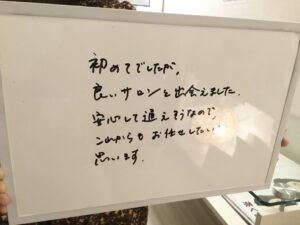 初めてでしたが、
良いサロンと出会えました。
安心して通えそうなので、
これからもお任せしたいと
思います。